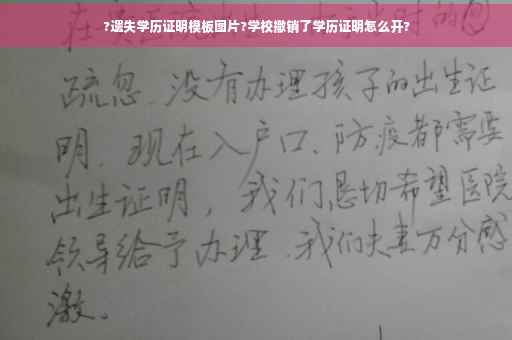 ?遗失学历证明模板图片?学校撤销了学历证明怎么开?
疏忽、没有办理孩子的出生证
明、现在入户口、防疫都需要
出生证明，我们恳切希望医院
领导给予办理、我们夫妻万分感
激。